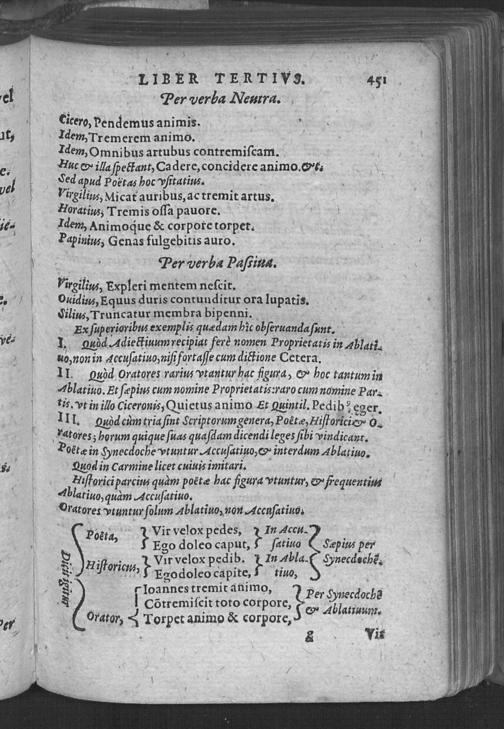 LIBER TERTIVS. 451
Per verba Neutra.
Cicero, Pendemus animis.
Idem, Tremerem animo.
Idem, Omnibus artubus contremiſcam.
Huc & illa ſpectant, Cadere, concidere animo. &c.
Sed apud Poëtas hoc vſitatius.
Virgilius, Micat auribus, ac tremit artus.
Horatius, Tremis oſſa pauore.
Idem, Animoque & corpore torpet.
Papinius, Genas fulgebitis auro.
Per verba Paſſiua.
Virgilius, Expleri mentem neſcit.
Ouidius, Equus duris contunditur ora lupatis.
Silius, Truncatur membra bipenni.
Ex ſuperioribus exemplis quædam hîc obſeruanda ſunt.
I. Quòd Adiectiuum recipiat ferè nomen Proprietatis in Ablati-
uo, non in Accuſatiuo, niſi fortaſſe cum dictione Cetera.
II. Quòd Oratores rarius vtantur hac figura, & hoc tantum in
Ablatiuo. Et ſæpius cum nomine Proprietatis: raro cum nomine Par-
tis. vt in illo Ciceronis, Quietus animo. Et Quintil. Pedibꝰ eger.
III. Quòd cùm tria ſint Scriptorum genera, Poëtæ, Hiſtorici & O-
ratores; horum quique ſuas quaſdam dicendi leges ſibi vindicant.
Poëtæ in Synecdoche vtuntur Accuſatiuo, & interdum Ablatiuo.
Quod in Carmine licet cuiuis imitari.
Hiſtorici parcius quàm poëtæ hac figura vtuntur, & frequentius
Ablatiuo, quàm Accuſatiuo.
Oratores vtuntur ſolum Ablatiuo, non Accuſatiuo.
Dicit igitur
Poëta, Vir velox pedes, In Accu-
Ego doleo caput, ſatiuo Sæpius per
Hiſtoricus, Vir velox pedib. In Abla- Synecdochē.
Ego doleo capite, tiuo,
Ioannes tremit animo, Per Synecdochē
Cōtremiſcit toto corpore, & Ablatiuum.
Orator, Torpet animo & corpore,
g Vir